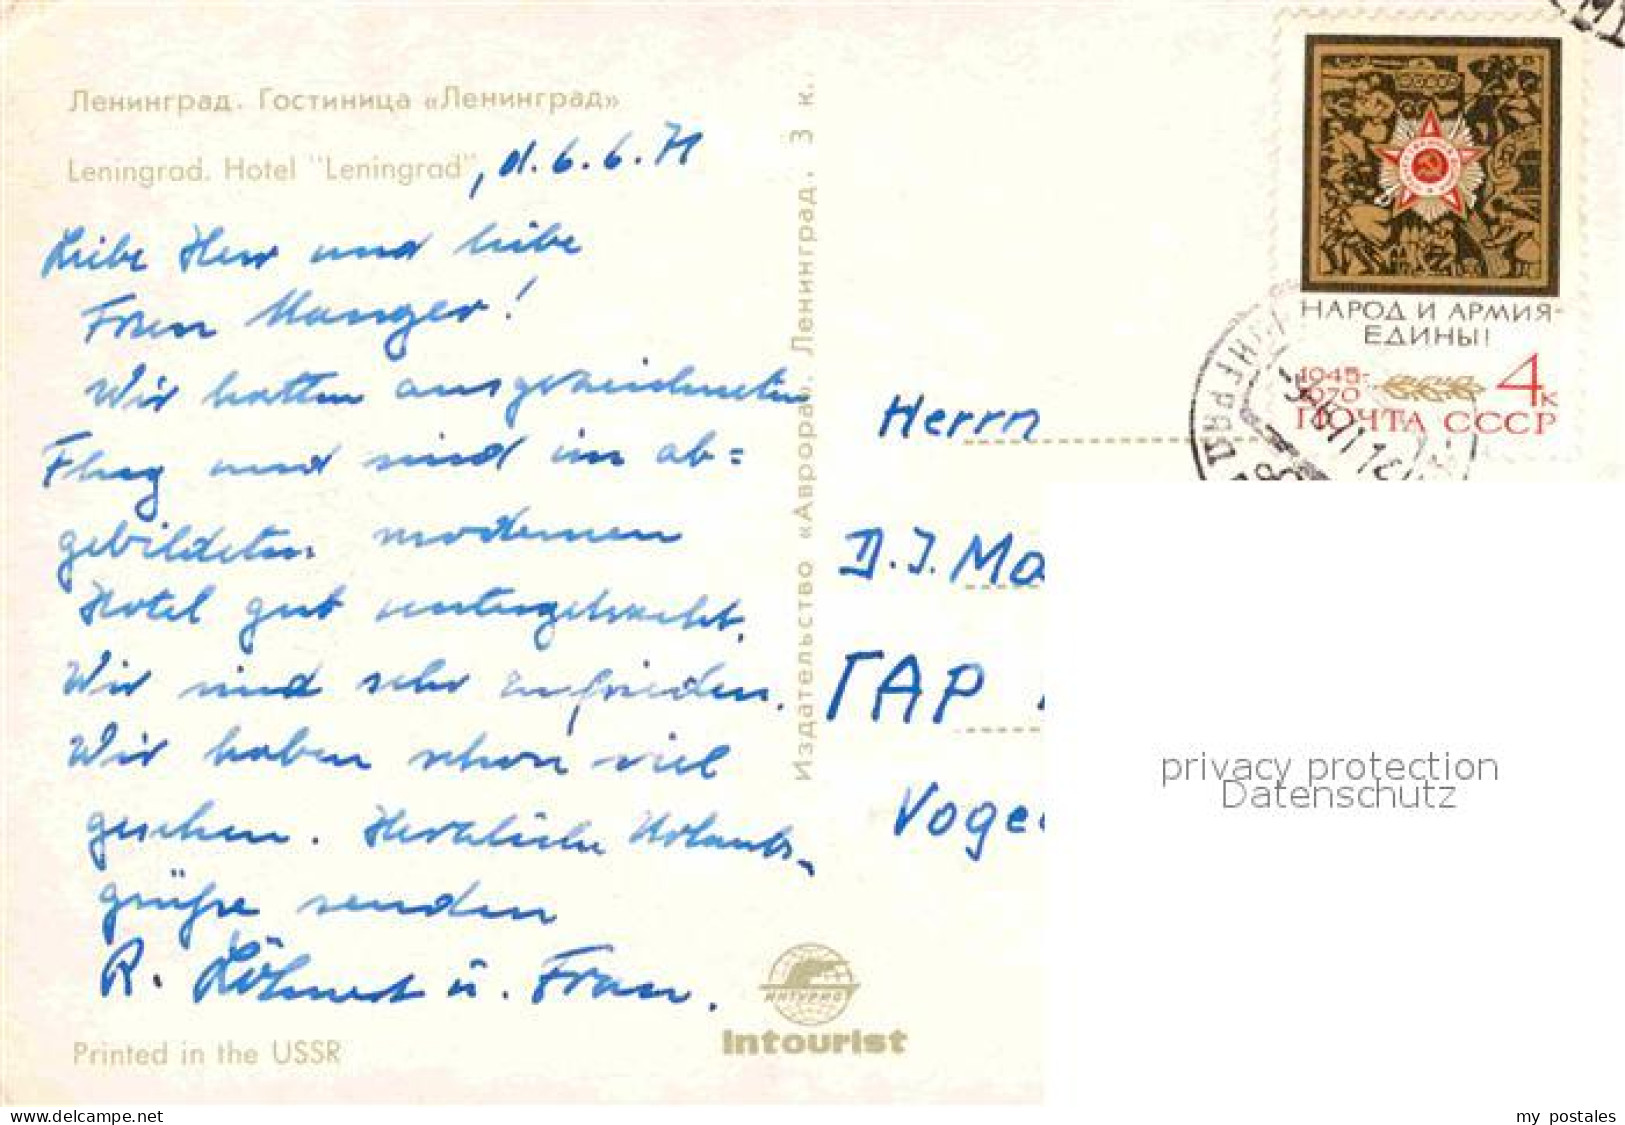 Ленинград. Гостиница «Ленинград»
Leningrad. Hotel "Leningrad", d. 6.6.71
Liebe Herr und liebe
Frau Manger!
Wir hatten ausgezeichneten
Flug und sind im ab=
gebildeten modernen
Hotel gut untergebracht.
Wir sind sehr zufrieden.
Wir haben schon viel
gesehen. Herzliche Urlaubs-
grüße senden
R. Löhnert u. Frau.
Printed in the USSR
Издательство «Аврора». Ленинград. 3 к.
ИНТУРИСТ
Intourist
НАРОД И АРМИЯ-
ЕДИНЫ!
1945-
1970
4к
ПОЧТА СССР
Herrn
D.J. Ma
ГАР
Voge
privacy protection
Datenschutz
www.delcampe.net
my_postales